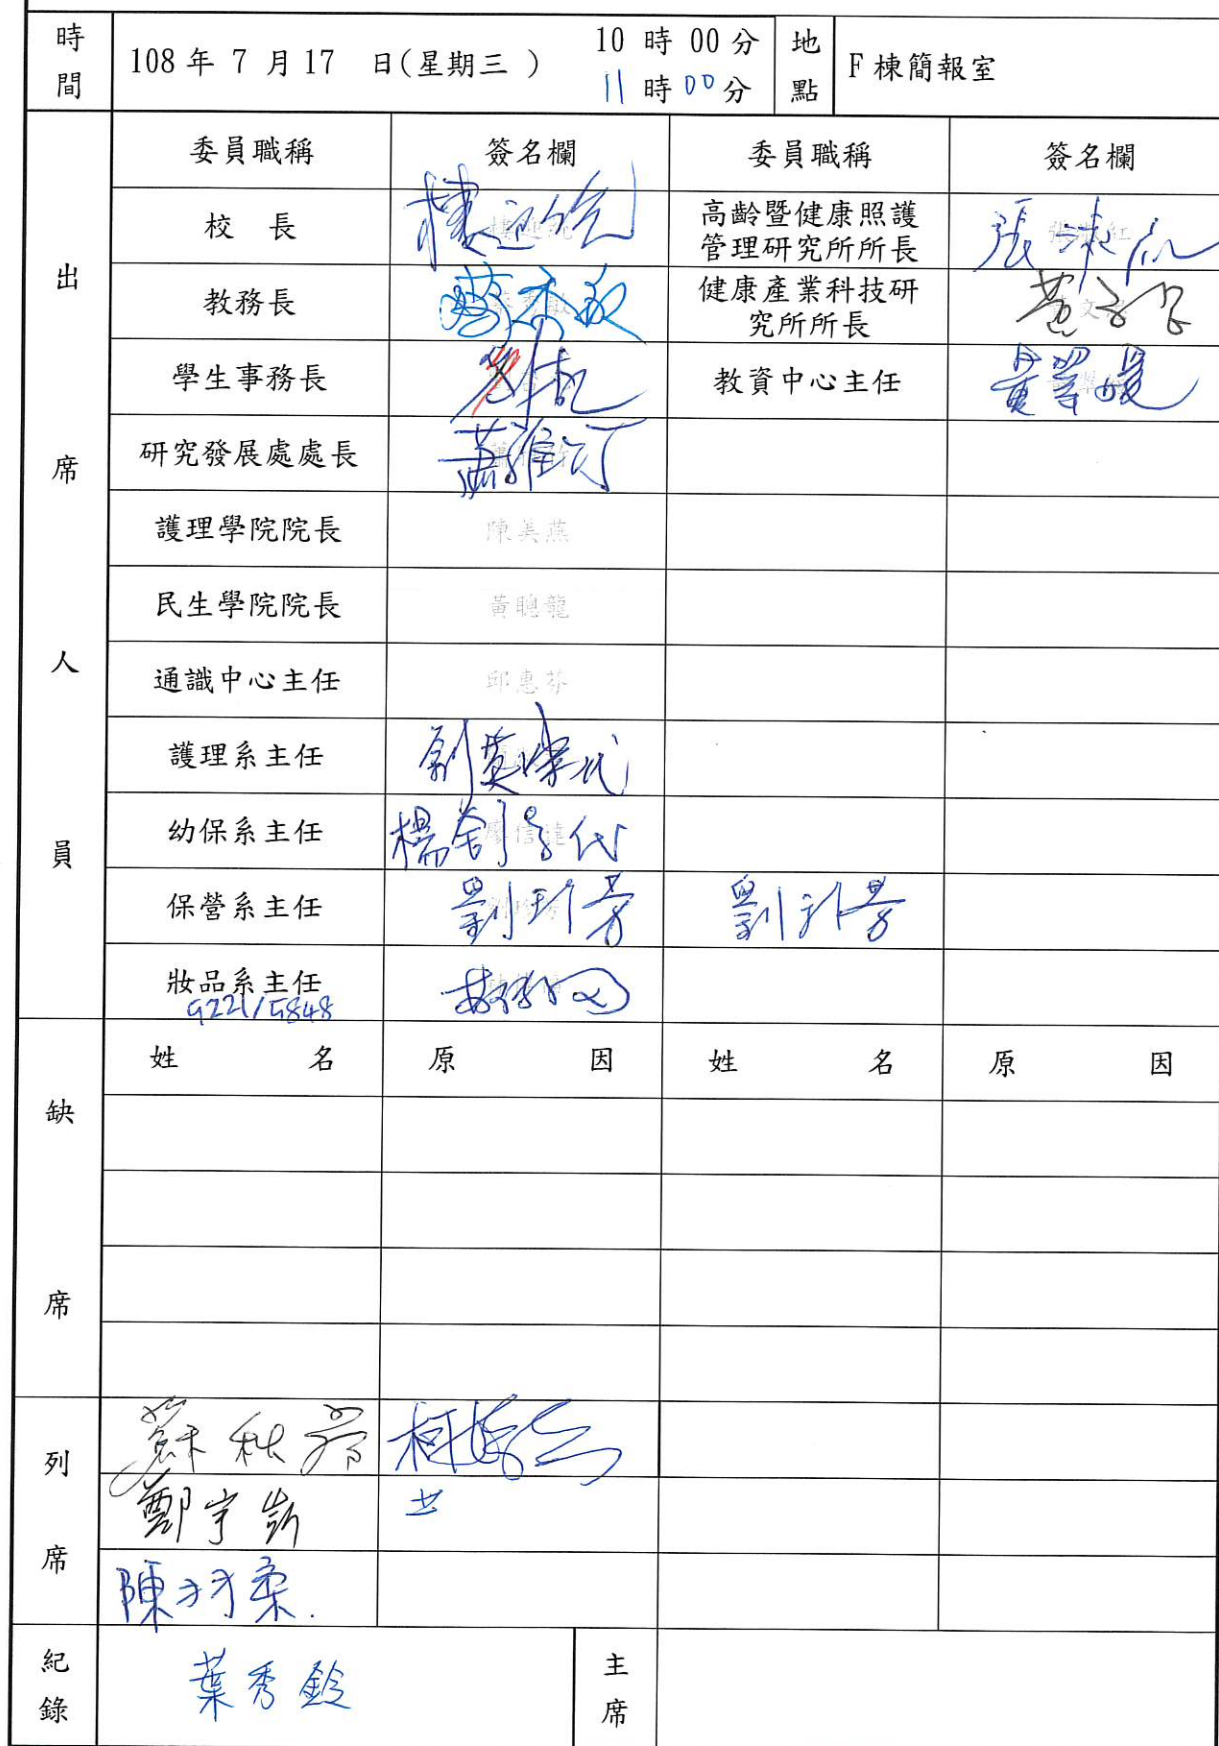 時間 108年 7 月17 日(星期三 ) 10 時 00分 地點 F棟簡報室
11時00分
出席人員
委員職稱 簽名欄 委員職稱 簽名欄
校 長 高齡暨健康照護
管理研究所所長 張淑紅
教務長 健康產業科技研
究所所長
學生事務長 教資中心主任 黃翠媛
研究發展處處長
護理學院院長 陳美燕
民生學院院長 黃聰龍
通識中心主任 邱惠芬
護理系主任
幼保系主任 廖信達
保營系主任 劉珍芳 劉珍芳
妝品系主任
9221/5848
缺席
姓 名 原 因 姓 名 原 因
列席
蘇秋芳
鄭宇
陳羽柔
紀錄 葉秀鈴 主席